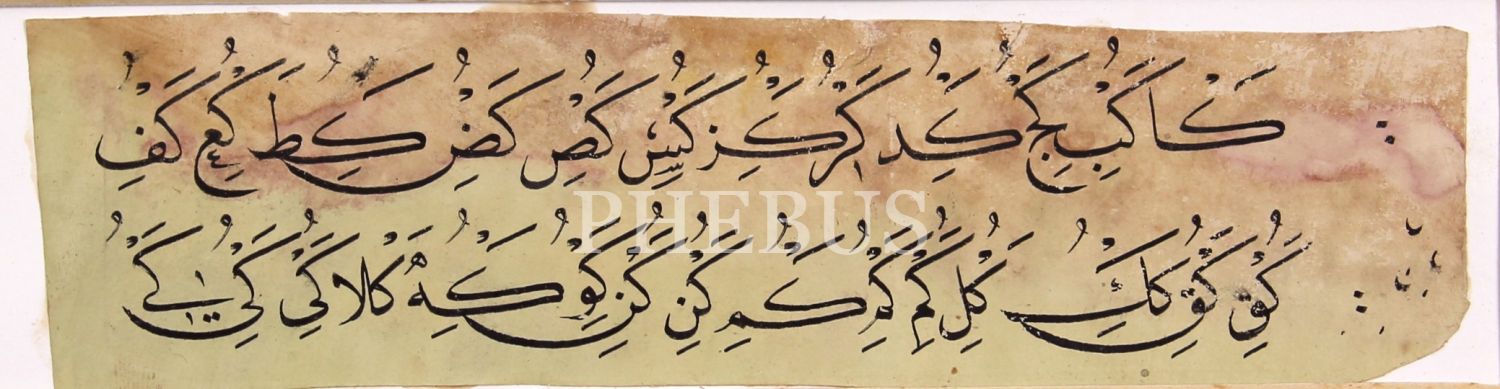 كا كب كج كد كر كز كس كص كض كط كع كف
كق كق كك كل كم كم كم كن كن كو كه كلا كى كى كى
PHEBUS